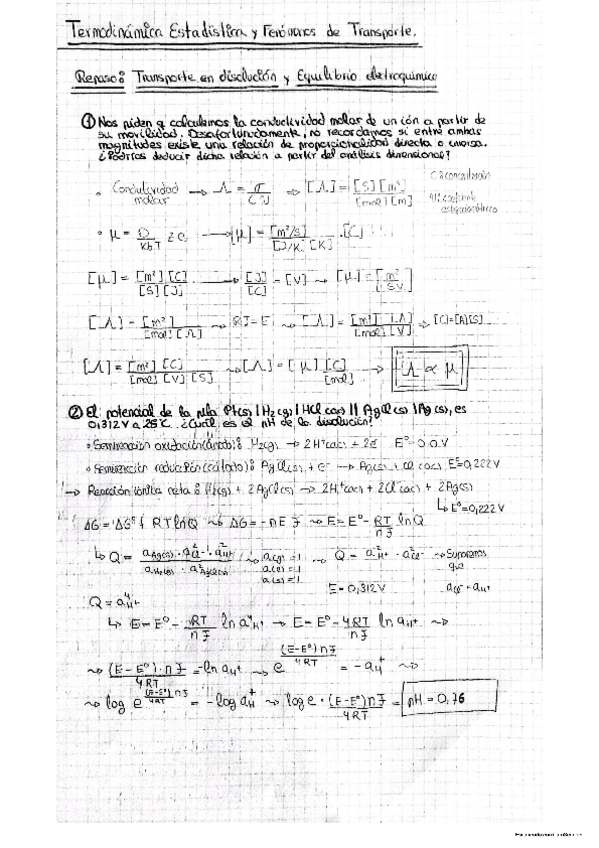 Termodinámica Estadística y Fenómenos de Transporte.
Repaso: Transporte en disolución y Equilibrio electroquímico
① Nos piden q calculemos la conductividad molar de un ión a partir de
su movilidad. Desafortunadamente, no recordamos si entre ambas
magnitudes existe una relación de proporcionalidad directa o inversa.
¿Podrías deducir dicha relación a partir del análisis dimensional?
C: concentración
• Conductividad molar → Λ = σ/(C ν) → [Λ] = [S][m²]/[mol][m]
estequiométrico
• μ = D/(K_B T) z e → [μ] = [m²/s]/([J/K][K]) · [C]
[μ] = [m²][C]/[S][J] → [J]/[C] = [V] → [μ] = [m²]/[S V]
[Λ] = [m²]/[mol][Ω] → RI=E → [Λ] = [m²][A]/[mol][V] → [C]=[A][S]
[Λ] = [m²][C]/[mol][V][S] → [Λ] = [μ] [C]/[mol] → Λ ∝ μ
② El potencial de la pila Pt(s)|H₂(g)|HCl(ac)||AgCl(s)|Ag(s), es
0,312V a 25°C. ¿Cuál es el pH de la disolución?
• Semirreacción oxidación (ánodo): H₂(g) → 2H⁺(ac) + 2e⁻ E°=0.0V
• Semirreacción reducción (cátodo): AgCl(s) + e⁻ → Ag(s) + Cl⁻(ac) E°=0,222V
→ Reacción iónica neta: H₂(g) + 2AgCl(s) → 2H⁺(ac) + 2Cl⁻(ac) + 2Ag(s)
↳ E°=0,222V
ΔG = ΔG° + RT ln Q → ΔG = -nEF → E = E° - RT/nF ln Q
↳ Q = → a(g)=1 a(l)=1 a(s)=1 → Q = a²H⁺ · a²Cl⁻ → Suponemos que
E = 0,312V aCl⁻ = aH⁺
Q = a⁴H⁺
↳ E = E° - RT/nF ln a⁴H⁺ → E = E° - 4RT/nF ln aH⁺ →
→ (E-E°)·nF/4RT = -ln aH⁺ → e^((E-E°)nF/4RT) = -aH⁺ →
→ log e^((E-E°)nF/4RT) = -log aH⁺ → log e · (E-E°)nF/4RT = pH = 0,76